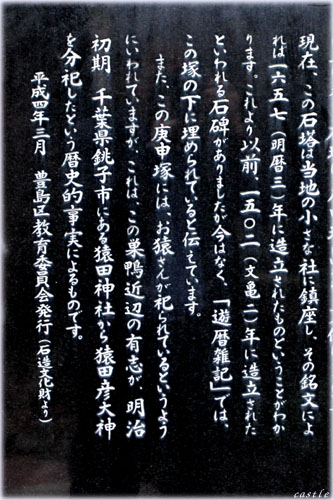 現在、この石塔は当地の小さな社に鎮座し、その銘文によ
れば一六五七（明暦三）年に造立されたものということがわか
ります。これより以前、一五〇二（文亀二）年に造立された
といわれる石碑がありましたが今はなく、「遊暦雑記」では、
この塚の下に埋められていると伝えています。
また、この庚申塚には、お猿さんが祀られているというよう
にいわれていますが、これは、この巣鴨近辺の有志が、明治
初期　千葉県銚子市にある猿田神社から猿田彦大神
を分祀したという暦史的事実によるものです。
平成四年三月　豊島区教育委員会発行（石造文化財より）
castle